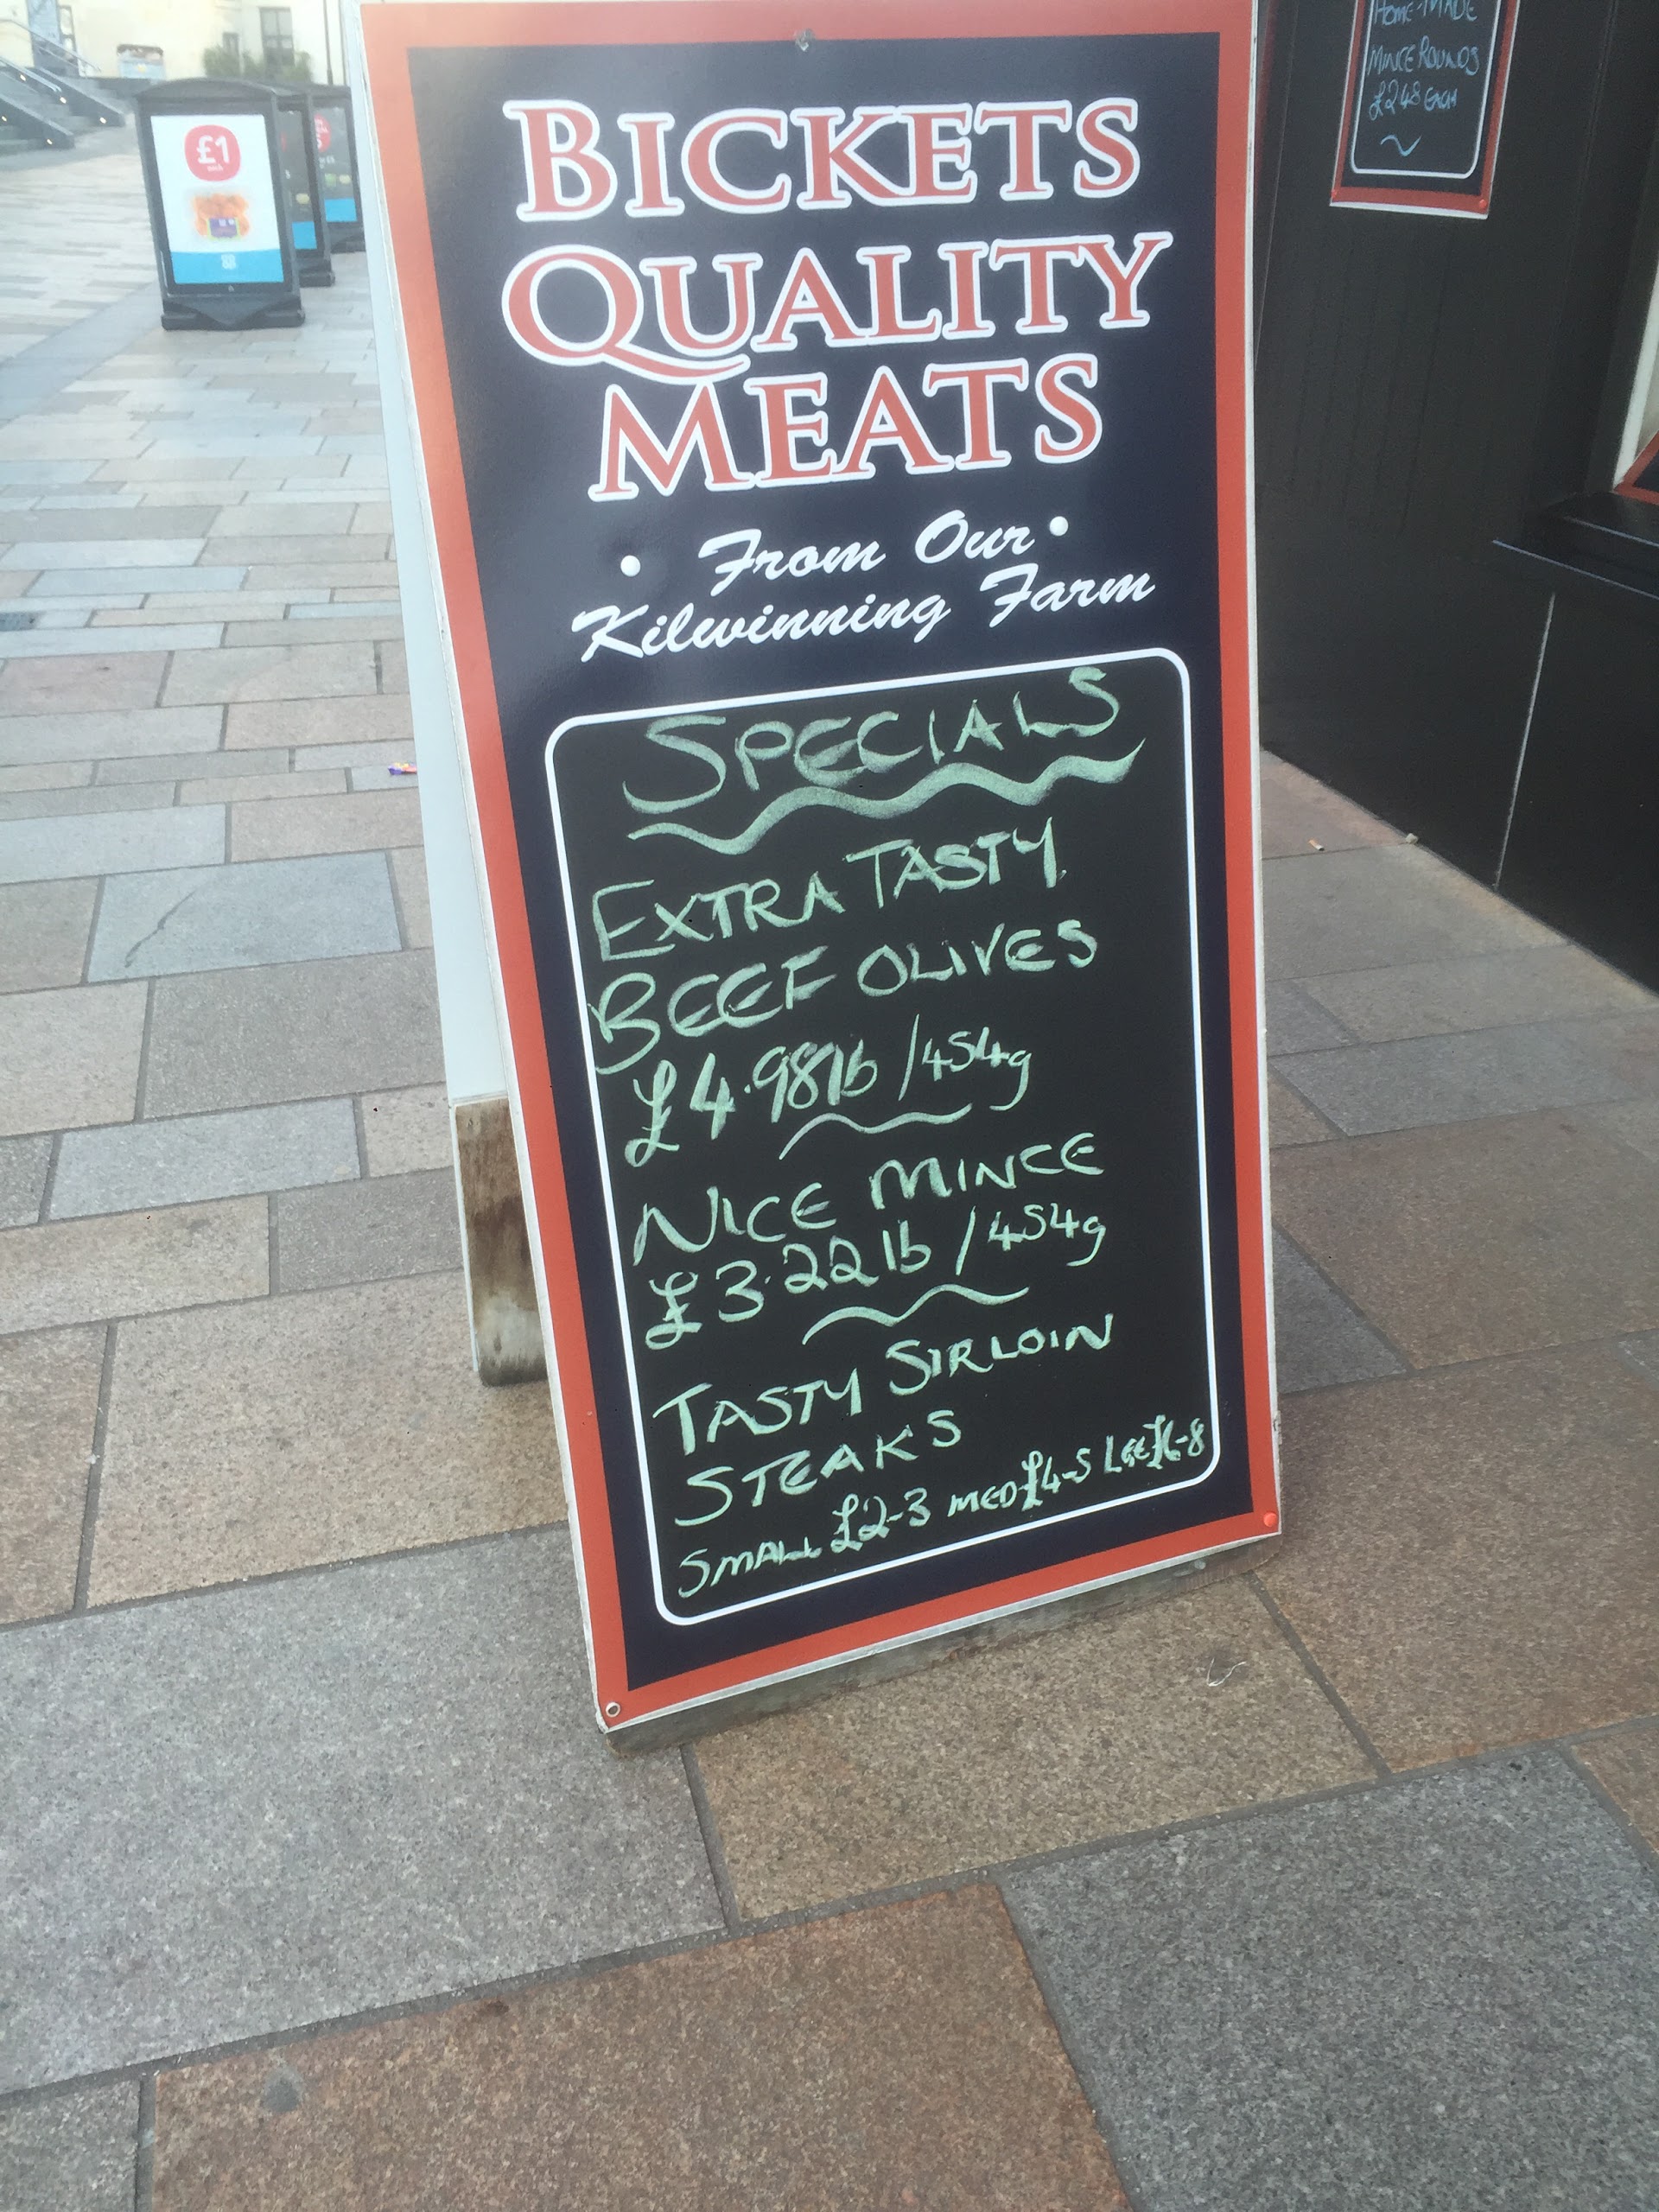 BICKETS
QUALITY
MEATS
• From Our •
Kilwinning Farm
SPECIALS
EXTRA TASTY
BEEF OLIVES
£4.98lb/454g
NICE MINCE
£3.22lb/454g
TASTY SIRLOIN
STEAKS
SMALL £2-3 MED £4-5 LGE £6-8
HOME-MADE
MINCE ROUNDS
£2.48 EACH
£1